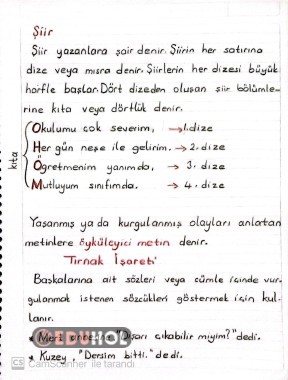 Şiir
Şiir yazanlara şair denir. Şiirin her satırına
dize veya mısra denir. Şiirlerin her dizesi büyük
harfle başlar. Dört dizeden oluşan şiir bölümle-
rine kıta veya dörtlük denir.
kıta
Okulumu çok severim, → 1. dize
Her gün neşe ile gelirim. → 2. dize
Öğretmenim yanımda, → 3. dize
Mutluyum sınıfımda. → 4. dize
Yaşanmış ya da kurgulanmış olayları anlatan
metinlere öyküleyici metin denir.
Tırnak İşareti
Başkalarına ait sözleri veya cümle içinde vur-
gulanmak istenen sözcükleri göstermek için kul-
lanır.
Mert annesine "Dışarı çıkabilir miyim?" dedi.
Kuzey, "Dersim bitti." dedi.
CS CamScanner ile tarandı